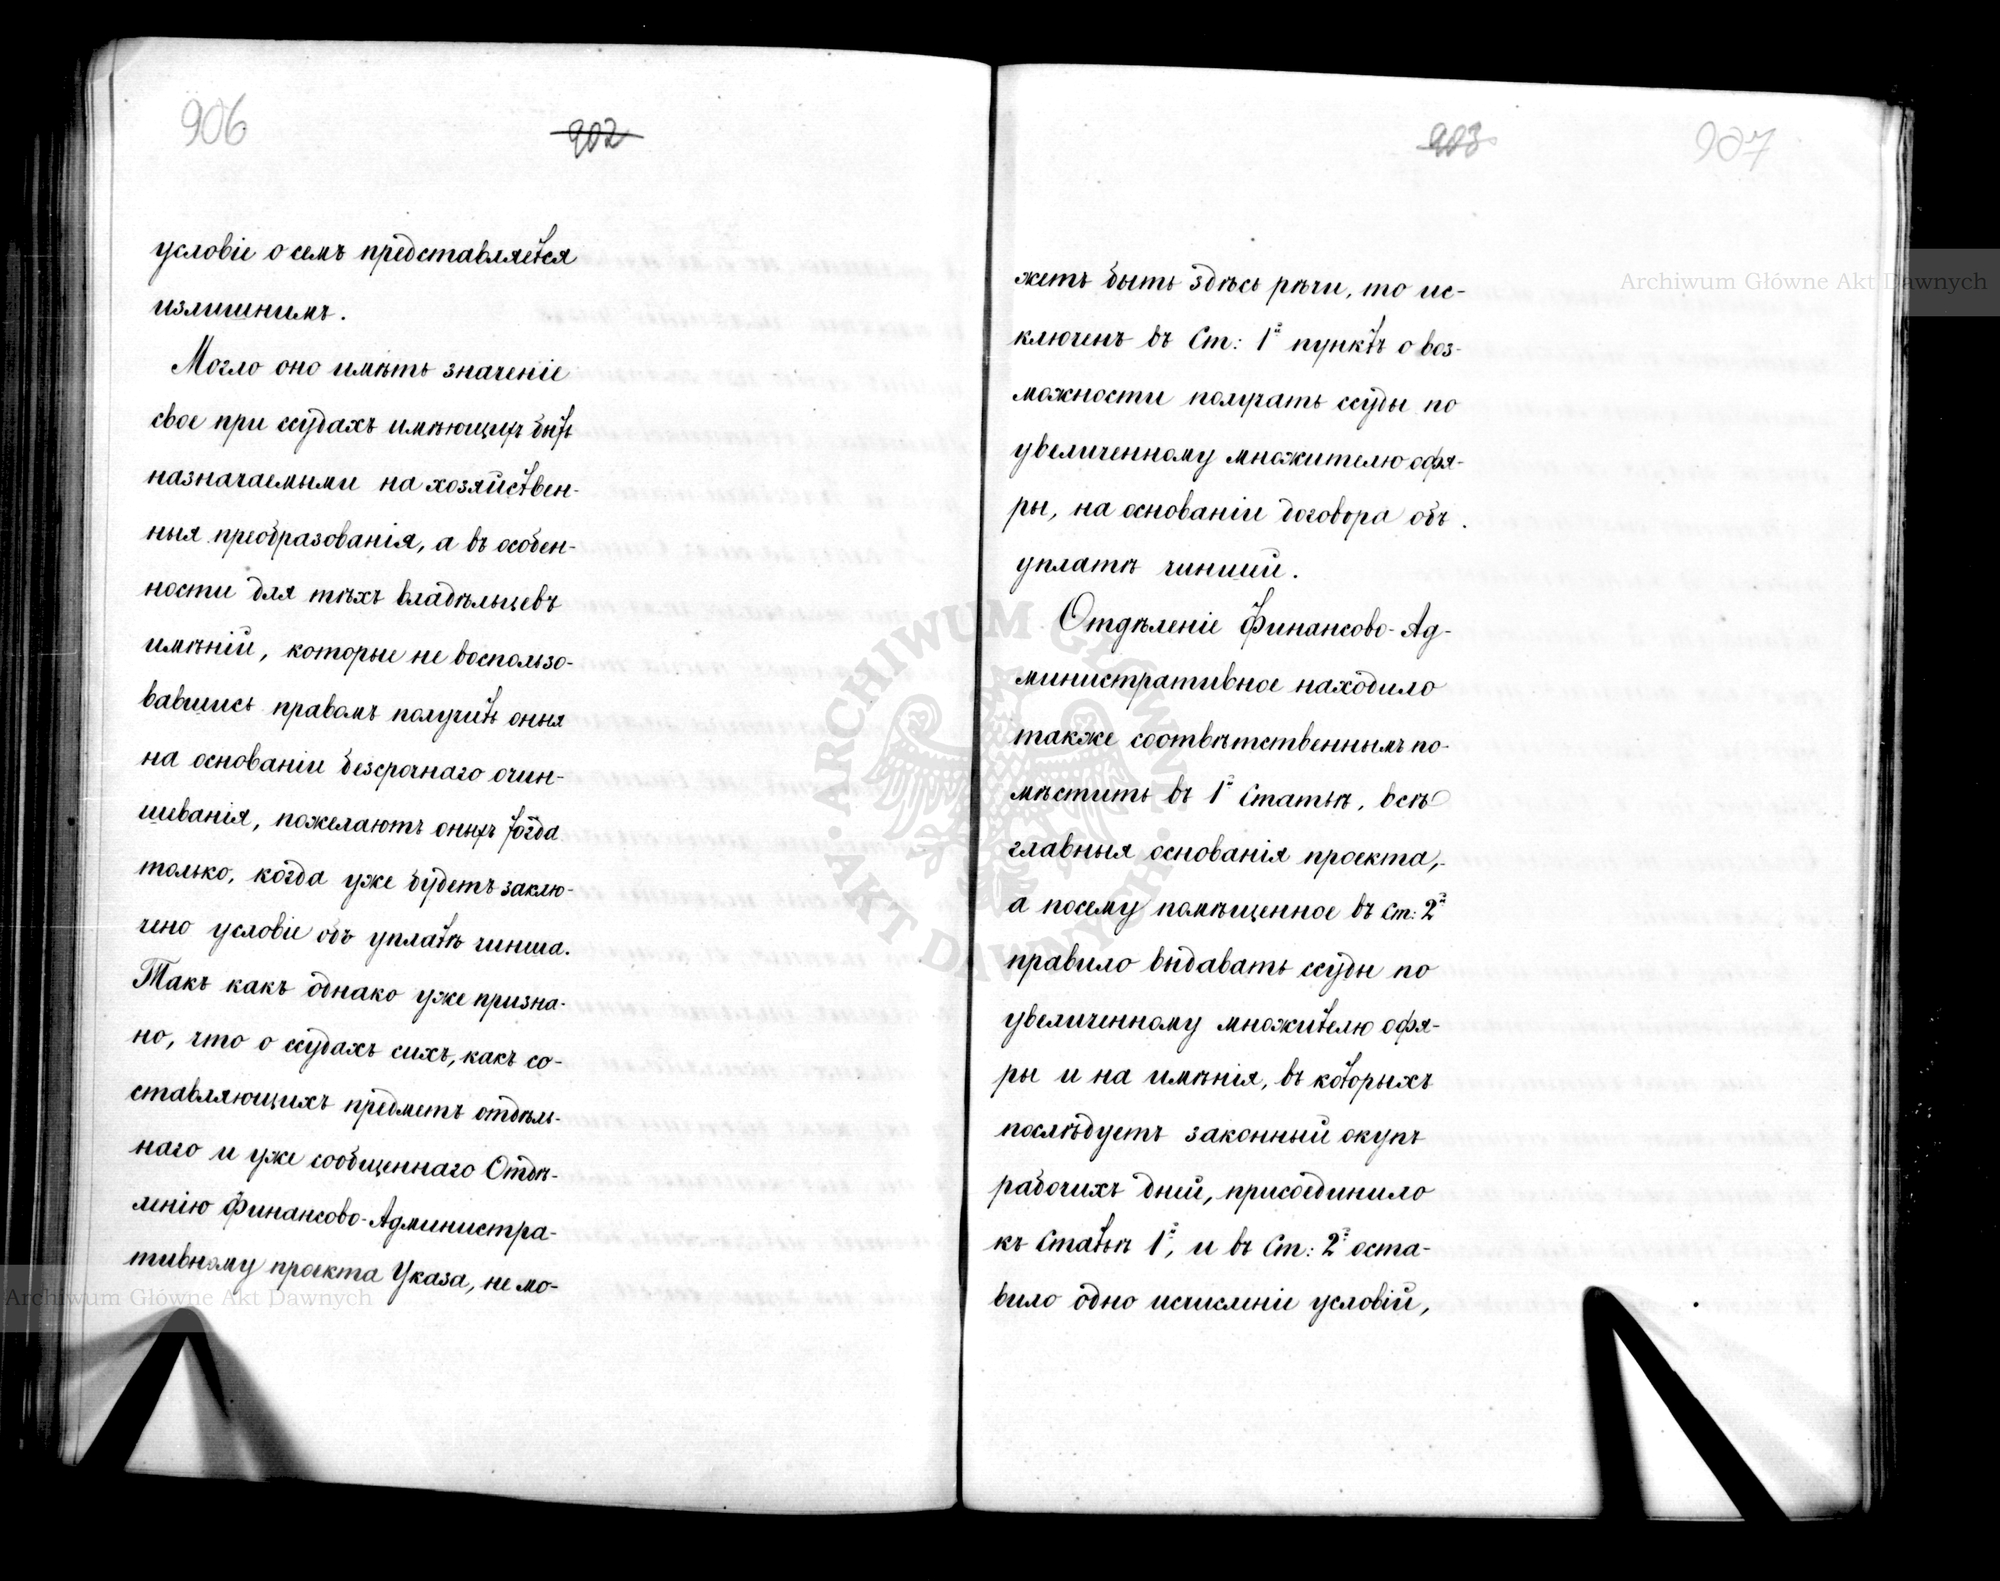 906
902
условіе о семъ представляется
излишнимъ.
Могло оно имѣть значеніе
свое при ссудахъ имѣющихъ быть
назначаемыми на хозяйствен-
ныя преобразованія, а въ особен-
ности для тѣхъ владѣльцевъ
имѣній, которые не воспользо-
вавшись правомъ получить оныя
на основаніи безсрочнаго очин-
шиванія, пожелаютъ оныхъ тогда
только, когда уже будетъ заклю-
чено условіе объ уплатѣ чинша.
Такъ какъ однако уже призна-
но, что о ссудахъ сихъ, какъ со-
ставляющихъ предметъ отдѣль-
наго и уже сообщеннаго Отдѣ-
ленію Финансово-Администра-
тивному проекта Указа, не мо-
903
907
жетъ быть здѣсь рѣчи, то ис-
ключенъ въ Ст: 1й пунктъ о воз-
можности получать ссуды по
увеличенному множителю офя-
ры, на основаніи договора объ
уплатѣ чиншй.
Отдѣленіе Финансово-Ад-
министративное находило
также соотвѣтственнымъ по-
мѣстить въ 1й Статьѣ, всѣ
главныя основанія проекта,
а посему помѣщенное въ Ст: 2й
правило выдавать ссуды по
увеличенному множителю офя-
ры и на имѣнія, въ которыхъ
послѣдуетъ законный окупъ
рабочихъ дней, присоединило
къ Статьѣ 1й, и въ Ст: 2й оста-
вило одно исчисленіе условій,
Archiwum Główne Akt Dawnych
Archiwum Główne Akt Dawnych
ARCHIWUM GŁÓWNE AKT DAWNYCH